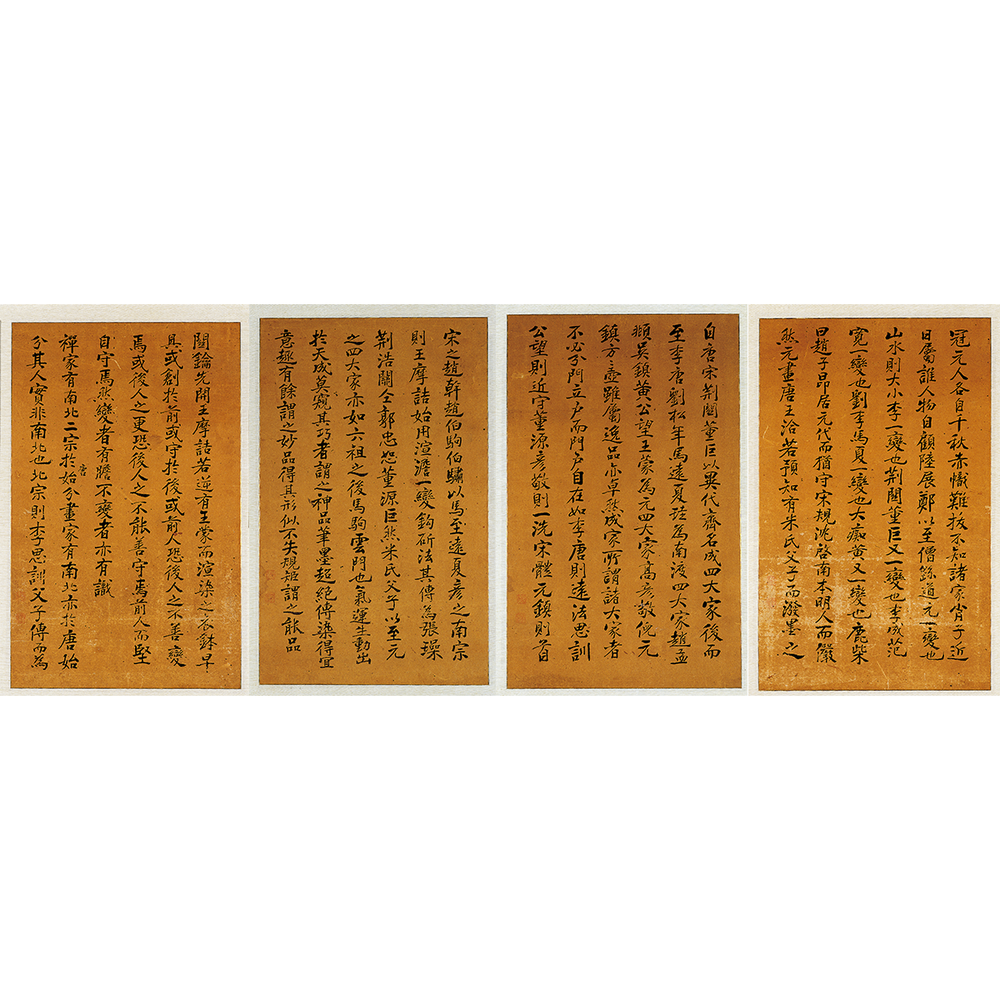 冠元人各自千秋赤幟難拔不知諸家肖子近
日屬誰人物自顧陸展鄭以至僧繇道元一變也
山水則大小李一變也荊關董巨又一變也李成范
寬一變也劉李馬夏一變也大癡黃又一變也鹿柴
曰趙子昂居元代而猶守宋規沈啓南本明人而儼
然元畫唐王洽若預知有米氏父子而潑墨之
自唐宋荊關董巨以異代齊名成四大家後而
至李唐劉松年馬遠夏珪為南渡四大家趙孟
頫吳鎮黃公望王蒙為元四大家高彥敬倪元
鎮方壺雖屬逸品亦卓然成家所謂諸大家者
不必分門立戶而門戶自在如李唐則遠法思訓
公望則近守董源彥敬則一洗宋體元鎮則首
宋之趙幹趙伯駒伯驌以馬至遠夏彥之南宗
則王摩詰始用渲澹一變鈎斫法其傳為張璪
荊浩關仝郭忠恕董源巨然米氏父子以至元
之四大家亦如六祖之後馬駒雲門也氣運生動出
於天成莫窺其巧者謂之神品筆墨超絕傳染得宜
意趣有餘謂之妙品得其形似不失規矩謂之能品
關鑰先開王摩詰若逆有王蒙而渲染之衣鉢早
具或創於前或守於後或前人恐後人之不善變
焉或後人之更恐後人之不能善守焉前人而堅
自守焉然變者有膽不變者亦有識
禪家有南北二宗於唐始分畫家有南北亦於唐始
分其人實非南北也北宗則李思訓父子傳而為